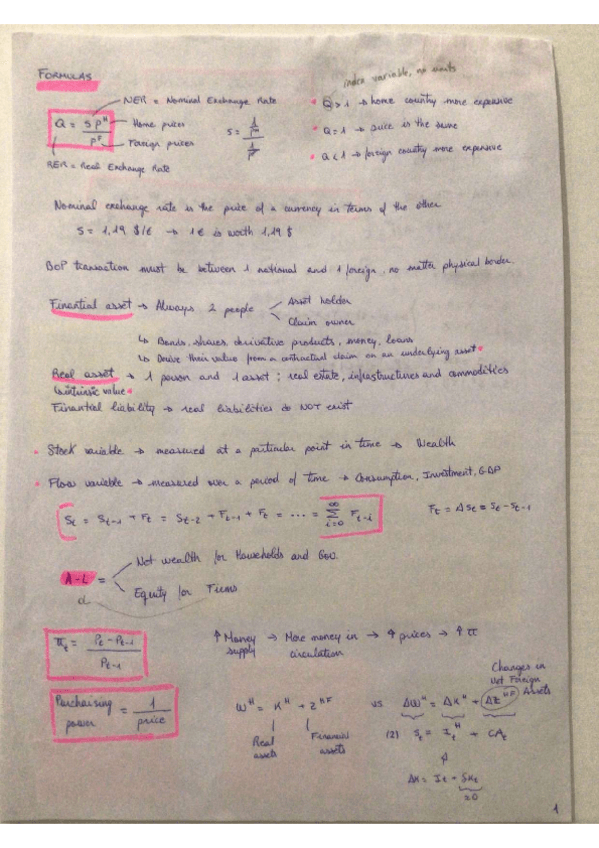 FORMULAS
index variable, no units
NER = Nominal Exchange Rate
Q = S P^H / P^F
Home prices
Foreign prices
RER = Real Exchange Rate
S = 1/P^H / 1/P^F
• Q > 1 → home country more expensive
• Q = 1 → price is the same
• Q < 1 → foreign country more expensive
Nominal exchange rate is the price of a currency in terms of the other
S = 1,19 $/€ → 1€ is worth 1,19 $
BoP transaction must be between 1 national and 1 foreign, no matter physical border.
Finantial asset → Always 2 people
Asset holder
Claim owner
↳ Bonds, shares, derivative products, money, loans
↳ Derive their value from a contractual claim on an underlying asset
Real asset → 1 person and 1 asset: real estate, infrastructures and commodities
↳ intrinsic value
Finantial liability → real liabilities do NOT exist
• Stock variable → measured at a particular point in time → Wealth
• Flow variable → measured over a period of time → Consumption, Investment, GDP
S_t = S_t-1 + F_t = S_t-2 + F_t-1 + F_t = ... = ∑_{i=0}^∞ F_t-i
F_t = ΔS_t = S_t - S_t-1
A-L =
Net wealth for Households and Gov.
Equity for Firms
π_t = P_t - P_t-1 / P_t-1
↑ Money supply → More money in circulation → ↑ prices → ↑ π
Purchasing power = 1 / price
W^H = K^H + Z^HF
Real assets
Financial assets
vs.
ΔW^H = ΔK^H + ΔZ^HF
Changes in Net Foreign Assets
(2) S_t = I_t^H + CA_t
ΔK = I_t - δK_t
= 0
1